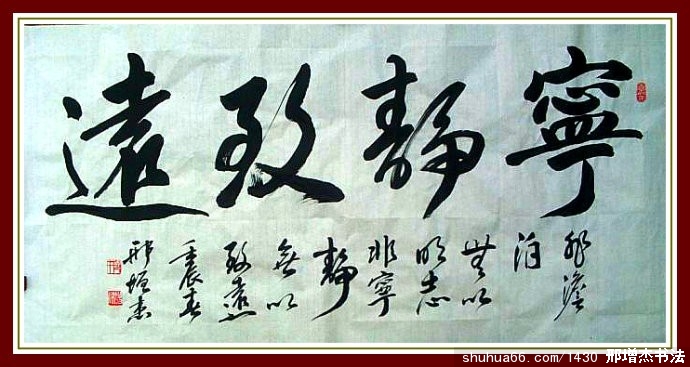 寧靜致遠
非澹
泊
無以
明志
非寧
靜
無以
致遠
壬辰春
邢增杰
shuhua66.com/1430 邢增杰书法